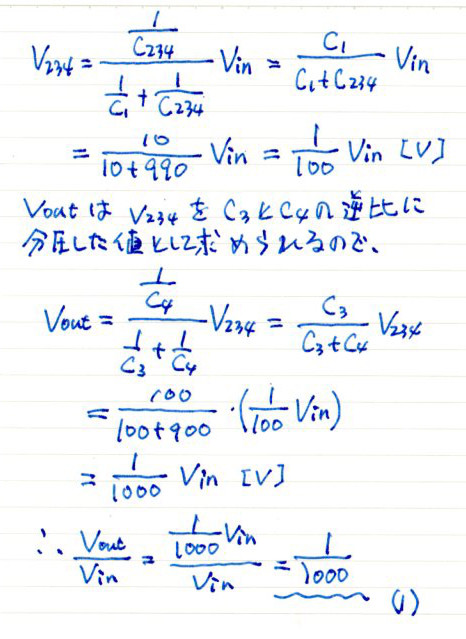 V₂₃₄ = (1/C₂₃₄)/(1/C₁ + 1/C₂₃₄) Vin = C₁/(C₁+C₂₃₄) Vin
= 10/(10+990) Vin = 1/100 Vin [V]
Voutは V₂₃₄を C₃とC₄の逆比に
分圧した値として求められるので、
Vout = (1/C₄)/(1/C₃ + 1/C₄) V₂₃₄ = C₃/(C₃+C₄) V₂₃₄
= 100/(100+900) ・(1/100 Vin)
= 1/1000 Vin [V]
∴ Vout/Vin = (1/1000 Vin)/Vin = 1/1000
(1)